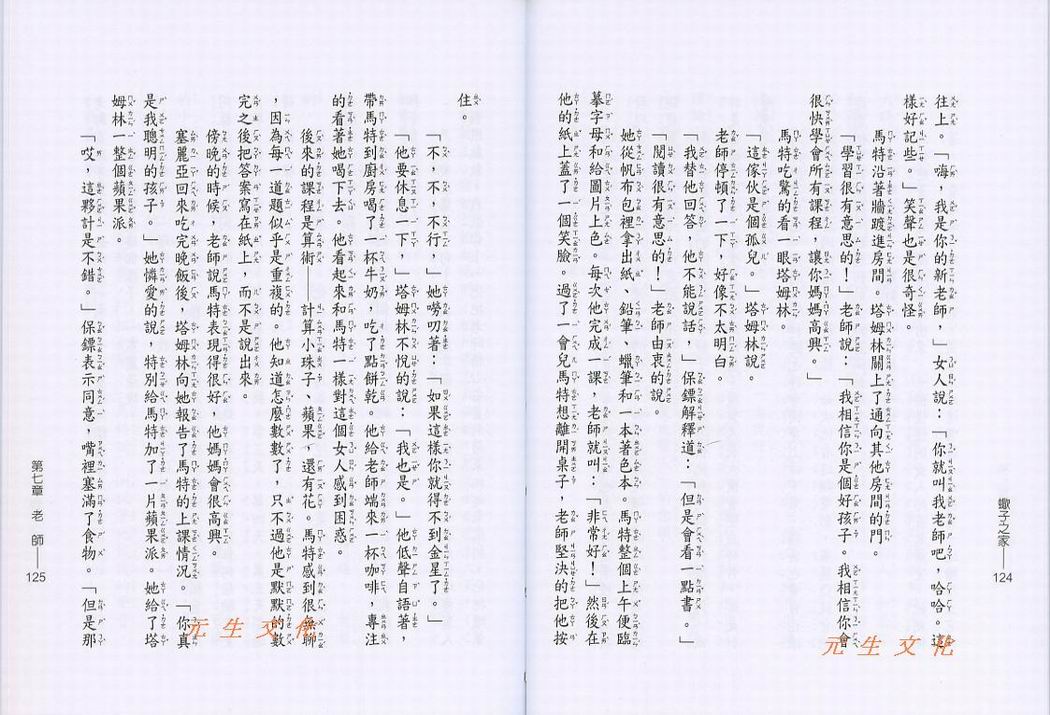 往上。「嗨，我是你的新老師，」女人說：「你就叫我老師吧，哈哈。這
樣好記些。」笑聲也是很奇怪。
馬特沿著牆踱進房間。塔姆林關上了通向其他房間的門。
「學習很有意思的！」老師說：「我相信你是個好孩子。我相信你會
很快學會所有課程，讓你媽媽高興。」
馬特吃驚的看一眼塔姆林。
「這傢伙是個孤兒。」塔姆林說。
老師停頓了一下，好像不太明白。
「我替他回答，他不能說話，」保鏢解釋道：「但是會看一點書。」
「閱讀很有意思的！」老師由衷的說。
她從帆布包裡拿出紙、鉛筆、蠟筆和一本著色本。馬特整個上午便臨
摹字母和給圖片上色。每次他完成一課，老師就叫：「非常好！」然後在
他的紙上蓋了一個笑臉。過了一會兒馬特想離開桌子，老師堅決的把他按
蠍子之家
124
住。
「不，不，不行，」她嘮叨著：「如果這樣你就得不到金星了。」
「他要休息一下，」塔姆林不悅的說：「我也是。」他低聲自語著，
帶馬特到廚房喝了一杯牛奶，吃了點餅乾。他給老師端來一杯咖啡，專注
的看著她喝下去。他看起來和馬特一樣對這個女人感到困惑。
後來的課程是算術——計算小珠子、蘋果，還有花。馬特感到很無聊
，因為每一道題似乎是重複的。他知道怎麼數數了，只不過他是默默的數
完之後把答案寫在紙上，而不是說出來。
傍晚的時候，老師說馬特表現得很好，他媽媽會很高興。
塞麗亞回來吃完晚飯後，塔姆林向她報告了馬特的上課情況。「你真
是我聰明的孩子。」她憐愛的說，特別給馬特加了一片蘋果派。她給了塔
姆林一整個蘋果派。
「哎，這夥計是不錯。」保鏢表示同意，嘴裡塞滿了食物。「但是那
第七章 老師
125
元生文化
元生文化